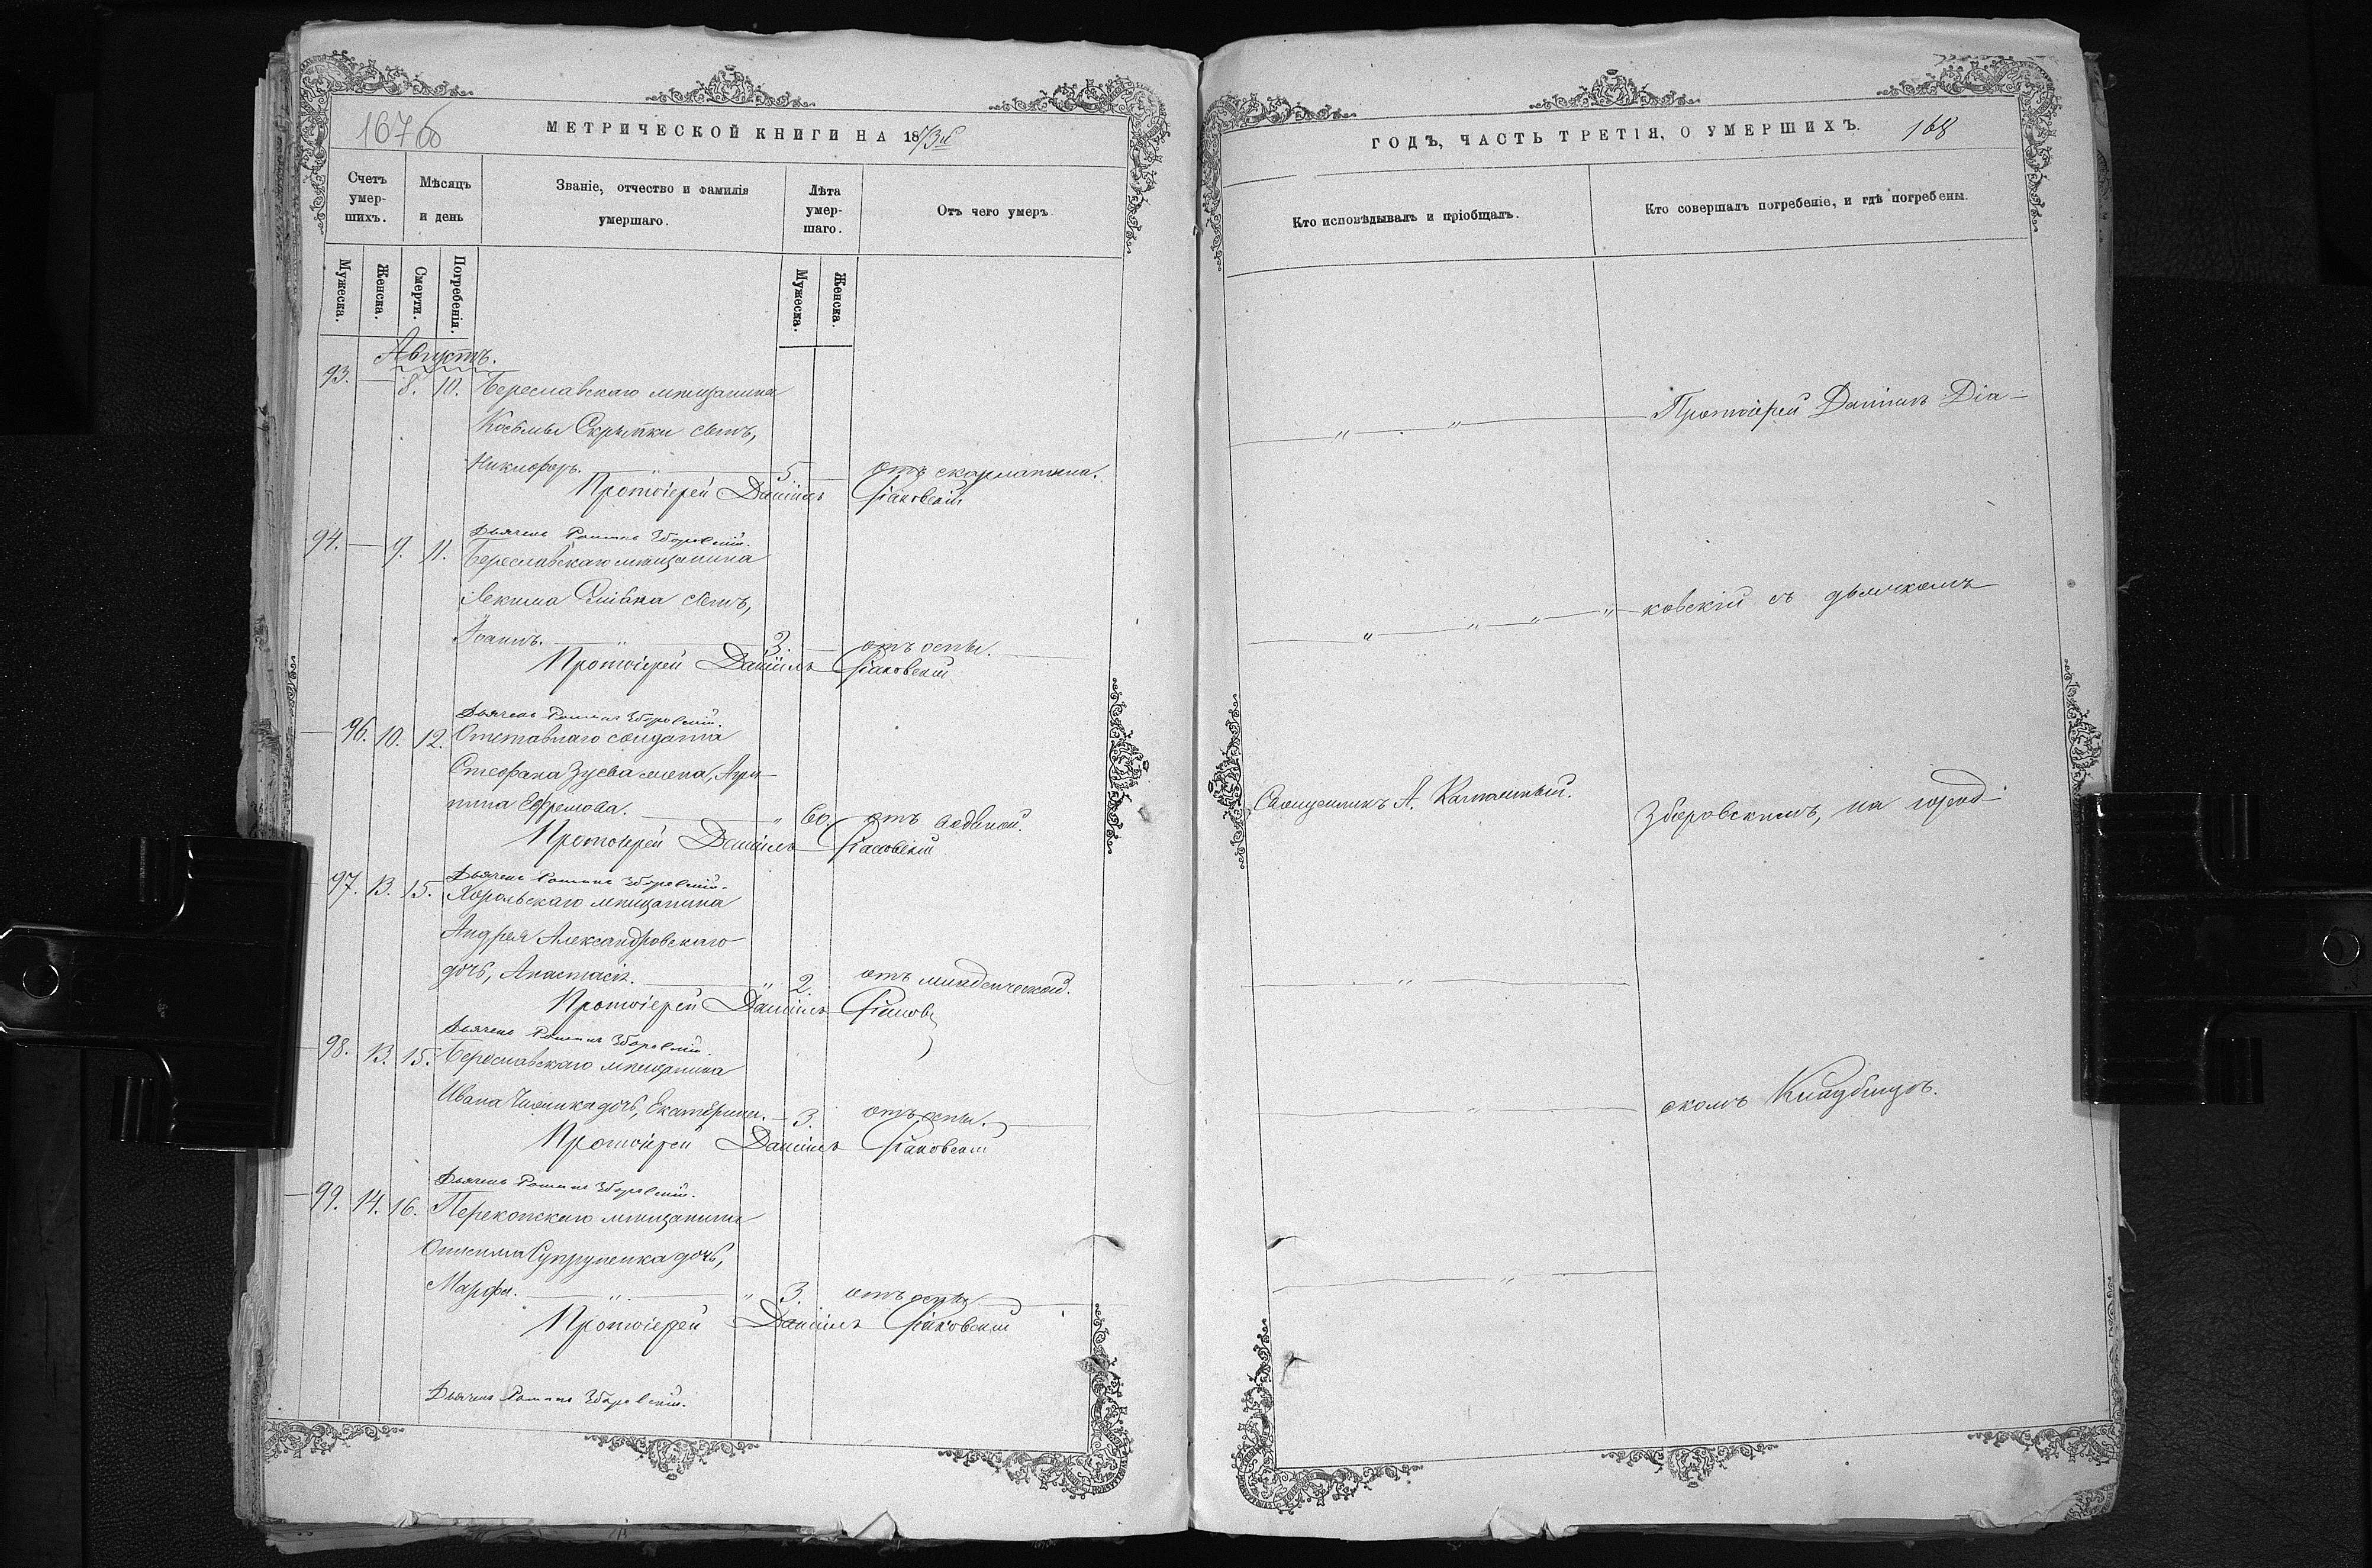 МЕТРИЧЕСКОЙ КНИГИ НА 1873й
Счетъ умер-шихъ.
Мѣсяцъ и день
Званіе, отчество и фамилія умершаго.
Лѣта умер-шаго.
Отъ чего умеръ
Мужеска.
Женска.
Смерти.
Погребенія.
Мужеска.
Женска.
Августъ.
93. — 8. 10. Береславскаго мѣщанина
Косьмы Скрыпки сынъ,
Никифоръ. — „ — 5 — отъ скарлатины.
Протоіерей Даніилъ Діаковскій
Дьячекъ Романъ Зборовскій.
94. — 9. 11. Береславскаго мѣщанина
сынъ,
Іоаннъ. — „ — 3. — отъ оспы.
Протоіерей Даніилъ Діаковскій
Дьячекъ Романъ Зборовскій.
— 96. 10. 12. Отставнаго солдата
Стефана Зуева жена, Агри-
пина Ефремова. — „ 60. отъ водяной.
Протоіерей Даніилъ Діаковскій
Дьячекъ Романъ Зборовскій.
— 97. 13. 15. Хорольскаго мѣщанина
Андрея Александровскаго
дочь, Анастасія. — „ 2 отъ младенческой.
Протоіерей Даніилъ Діаков
Дьячекъ Романъ Зборовскій.
— 98. 13. 15. Береславскаго мѣщанина
Ивана дочь, Екатерина. — 3. отъ оспы.
Протоіерей Даніилъ Діаковскій
Дьячекъ Романъ Зборовскій.
— 99. 14. 16. Перекопскаго мѣщанина
Онисима Супруненка дочь,
Марфа. — „ — „ 3. отъ оспы.
Протоіерей Даніилъ Діаковскій
Дьячекъ Романъ Зборовскій.
ГОДЪ, ЧАСТЬ ТРЕТІЯ, О УМЕРШИХЪ.
168
Кто исповѣдывалъ и пріобщалъ.
Кто совершалъ погребеніе, и гдѣ погребены.
— „ — „ — Протоіерей Даніилъ Діа-
— „ — „ — „ — „ — ковскій съ дьячкомъ
Священникъ А.
Зборовскимъ, на город-
— „ —
— „ — скомъ Кладбищѣ.
— „ —